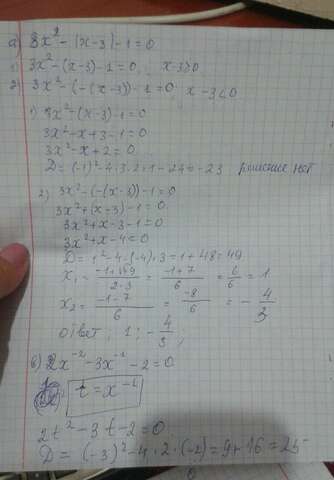 а) 3x² - |x-3| - 1 = 0
1) 3x² - (x-3) - 1 = 0, x-3≥0
2) 3x² - (-(x-3)) - 1 = 0 x-3<0
1) 3x² - (x-3) - 1 = 0
3x² - x + 3 - 1 = 0
3x² - x + 2 = 0
D = (-1)² - 4·3·2 = 1 - 24 = -23 решение нет
2) 3x² - (-(x-3)) - 1 = 0
3x² + (x-3) - 1 = 0
3x² + x - 3 - 1 = 0
3x² + x - 4 = 0
D = 1² - 4·(-4)·3 = 1 + 48 = 49
x₁ = (-1+√49)/(2·3) = (-1+7)/6 = 6/6 = 1
x₂ = (-1-7)/6 = -8/6 = -4/3
ответ, 1; -4/3;
в) 2x⁻² - 3x⁻¹ - 2 = 0
t = x⁻¹
2t² - 3t - 2 = 0
D = (-3)² - 4·2·(-2) = 9 + 16 = 25